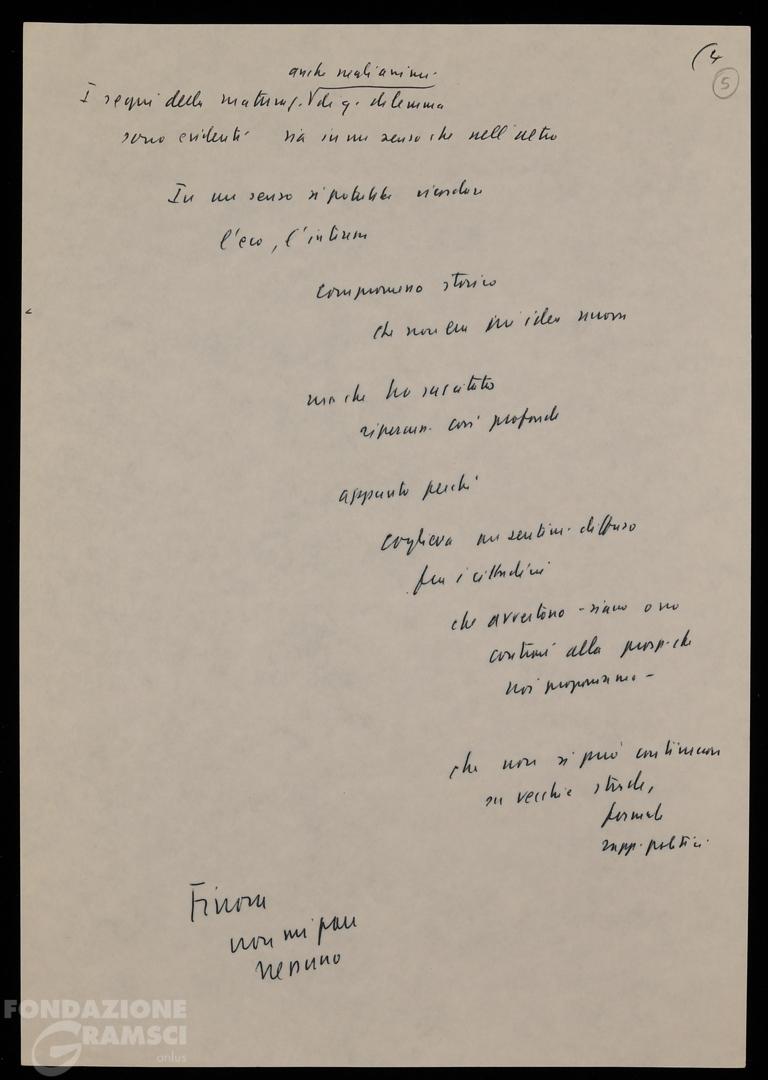 (4
5
anche negli animi.
I segni della maturaz. √ di q. dilemma
sono evidenti sia in un senso che nell'altro
In un senso si potrebbe ricordare
l'eco, l'interesse
compromesso storico
che non era più idea nuova
ma che ha suscitato
ripercuss. così profonde
appunto perché
coglieva un sentim. diffuso
fra i cittadini
che avvertono - siano o no
contrari alla prosp. che
noi proponiamo -
che non si può continuare
su vecchie strade,
formule
rapp. politici.
Finora
non mi pare
nessuno
FONDAZIONE
GRAMSCI
onlus